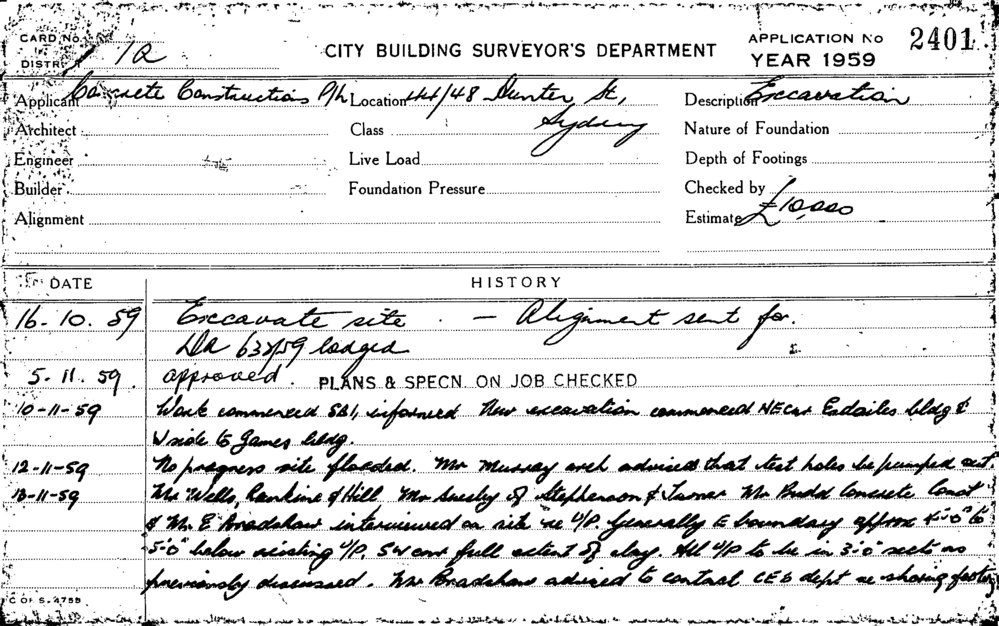 CARD No.
DISTR. 1A
CITY BUILDING SURVEYOR'S DEPARTMENT
APPLICATION No 2401
YEAR 1959
Applicant Concrete Constructions P/L Location 44/48 Hunter St, Sydney Description Excavation
Architect Class Nature of Foundation
Engineer Live Load Depth of Footings
Builder Foundation Pressure Checked by
Alignment Estimate £10,000
DATE HISTORY
16.10.59 Excavate site - Alignment sent for.
DA 638/59 lodged
5.11.59. approved. PLANS & SPECN. ON JOB CHECKED
10-11-59 Work commenced SBI, informed New excavation commenced NE cnr Esdailes bldg &
W side to James bldg.
12-11-59 No progress site flooded. Mr Murray arch advised that test holes be pumped out.
13-11-59 Mr Wells, Rankine & Hill Mr of Stephenson & Turner Mr Budd Concrete Const
& Mr E Bradshaw interviewed on site re U/P. Generally E boundary approx 4'-0" to
5'-0" below existing U/P. SW cnr full extent of clay. All U/P to be in 3'-0" sects as
previously discussed. Mr Bradshaw advised to contact CES dept re shoring footing
C OF S. 4755